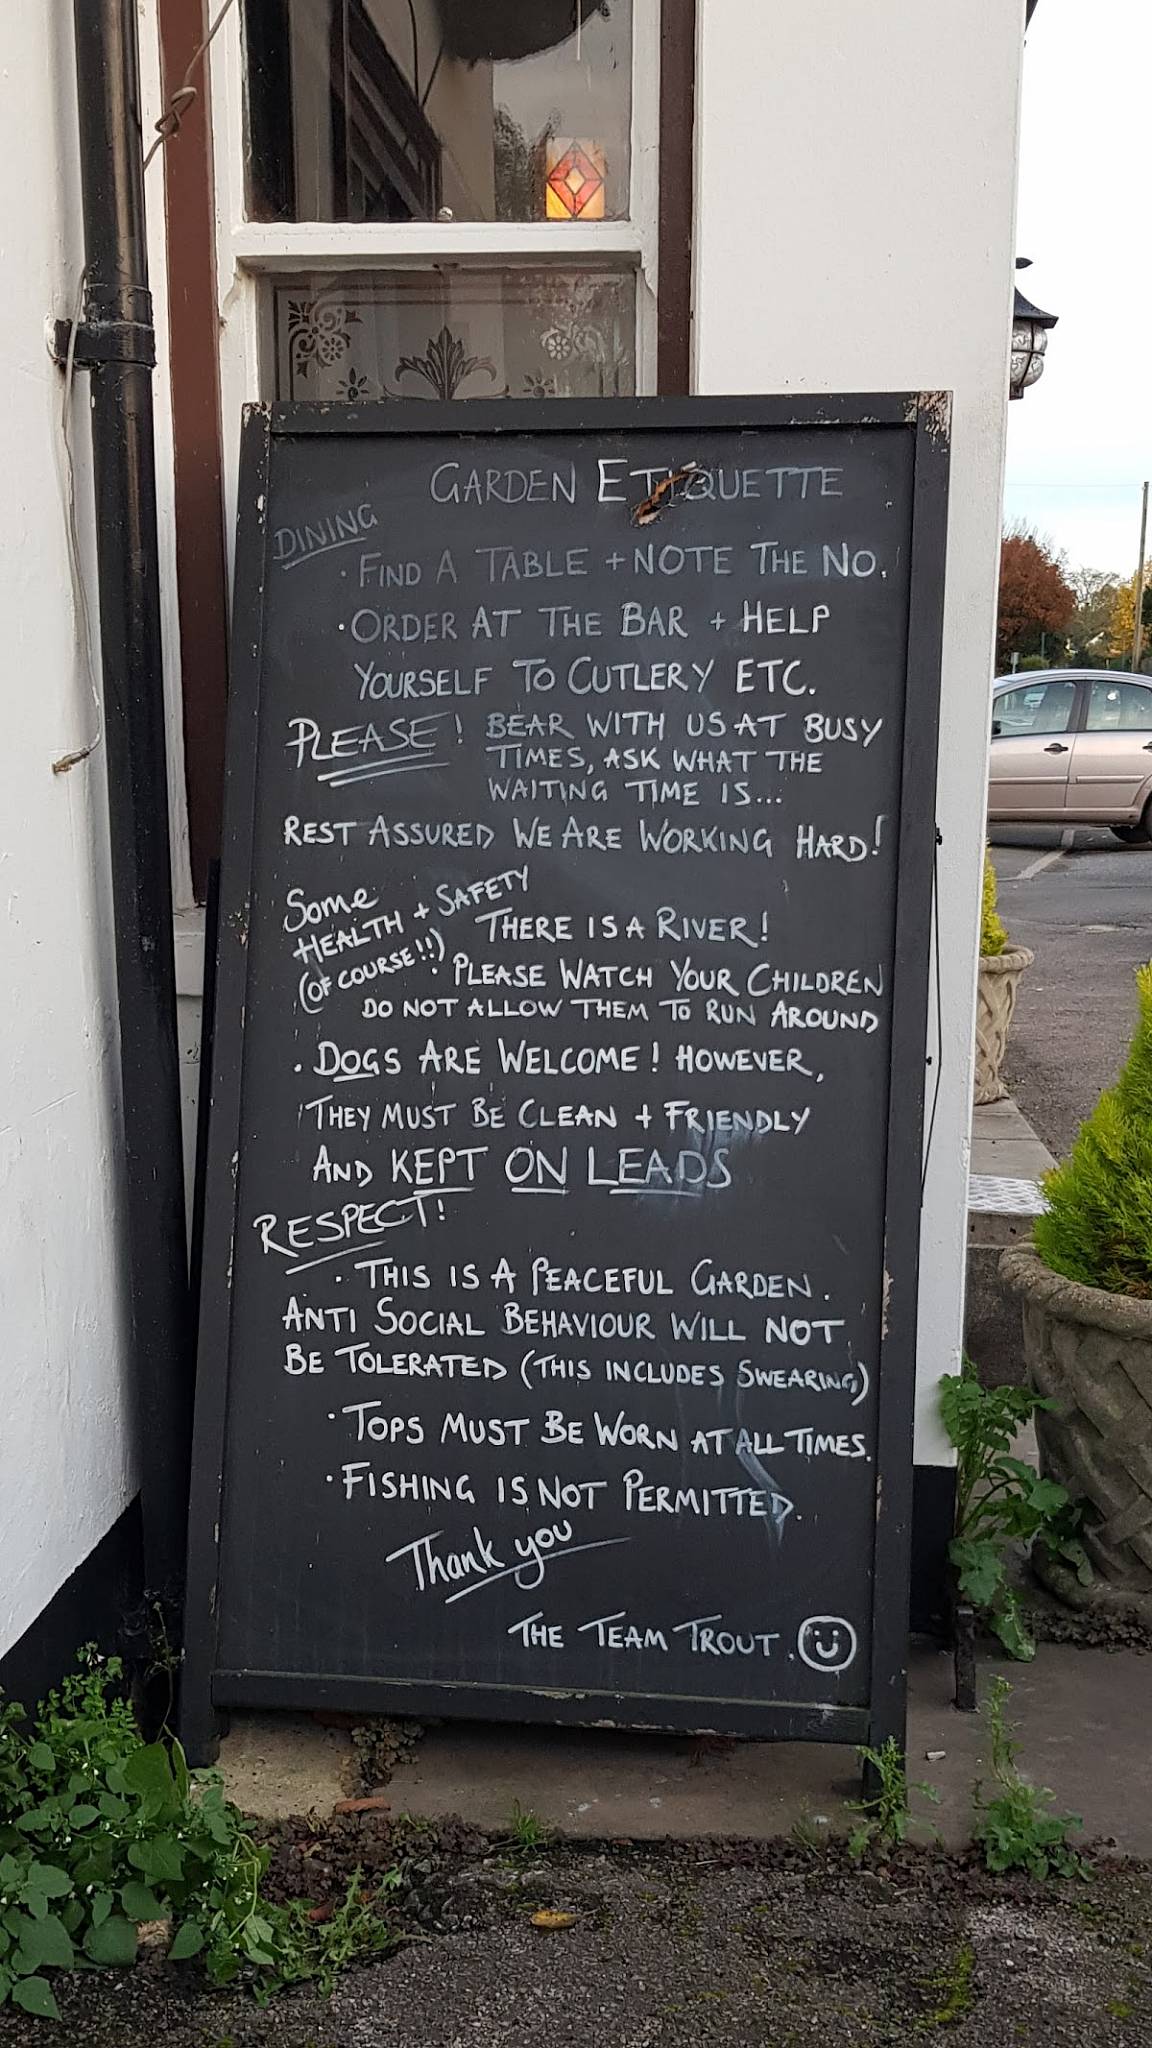 GARDEN ETIQUETTE
DINING
· FIND A TABLE + NOTE THE NO.
· ORDER AT THE BAR + HELP
YOURSELF TO CUTLERY ETC.
PLEASE! BEAR WITH US AT BUSY
TIMES, ASK WHAT THE
WAITING TIME IS...
REST ASSURED WE ARE WORKING HARD!
SOME
HEALTH + SAFETY
(OF COURSE!!)
THERE IS A RIVER!
· PLEASE WATCH YOUR CHILDREN
DO NOT ALLOW THEM TO RUN AROUND
· DOGS ARE WELCOME! HOWEVER,
THEY MUST BE CLEAN + FRIENDLY
AND KEPT ON LEADS
RESPECT!
· THIS IS A PEACEFUL GARDEN.
ANTI SOCIAL BEHAVIOUR WILL NOT
BE TOLERATED (THIS INCLUDES SWEARING)
· TOPS MUST BE WORN AT ALL TIMES.
· FISHING IS NOT PERMITTED.
Thank you
THE TEAM TROUT.